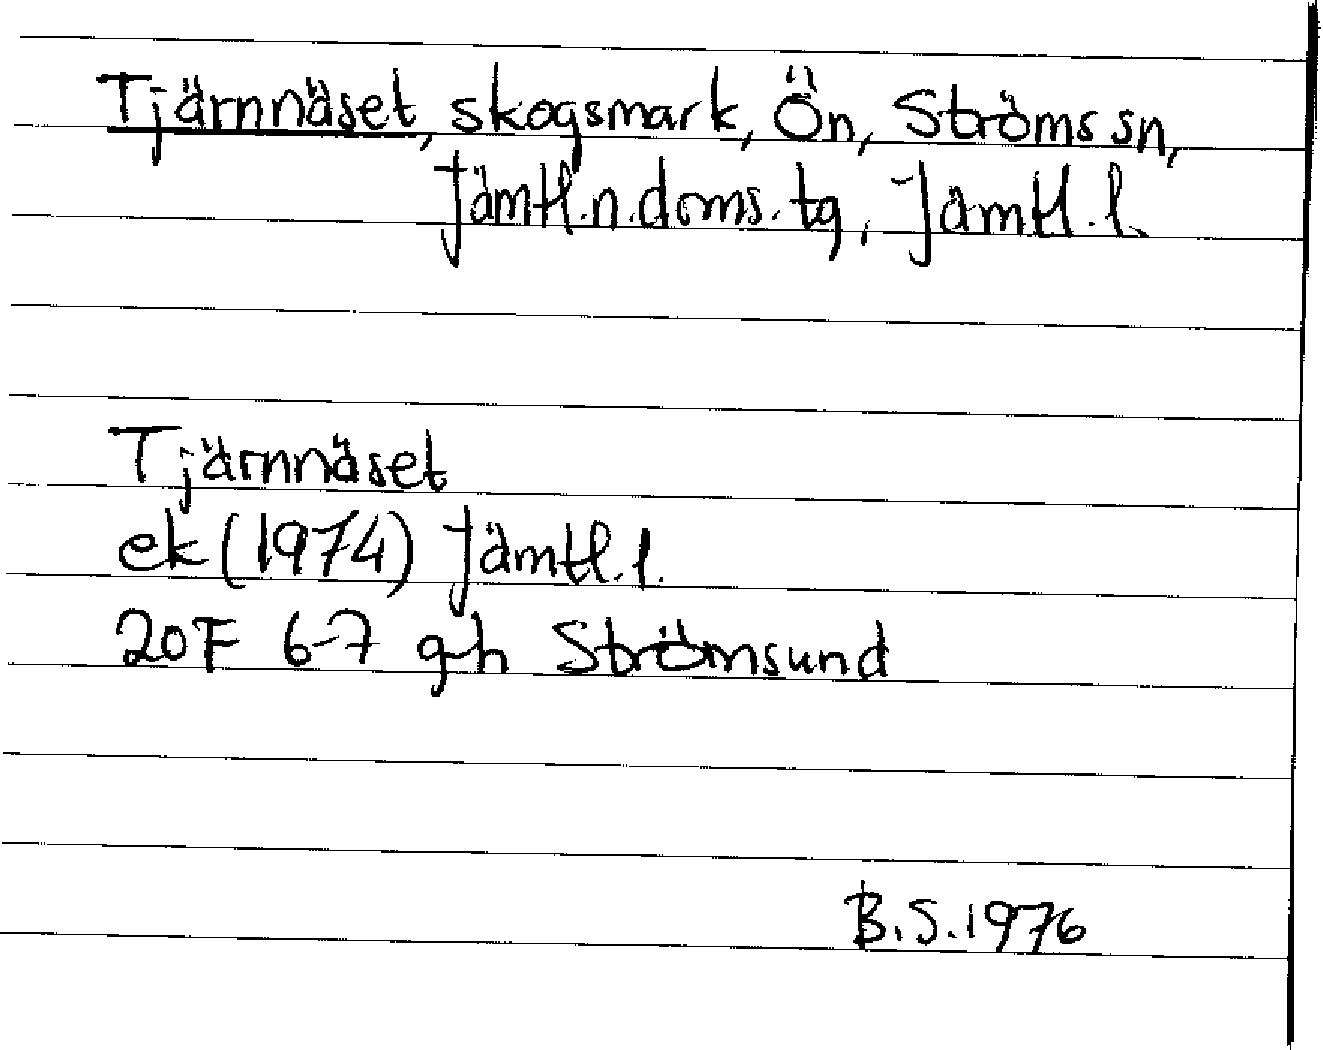 Tjärnnäset, skogsmark, Ön, Ströms sn,
Jämtl.n.doms.tg, Jämtl.l.
Tjärnnäset
ek (1974) Jämtl.l.
20F 6-7 g-h Strömsund
B.S.1976